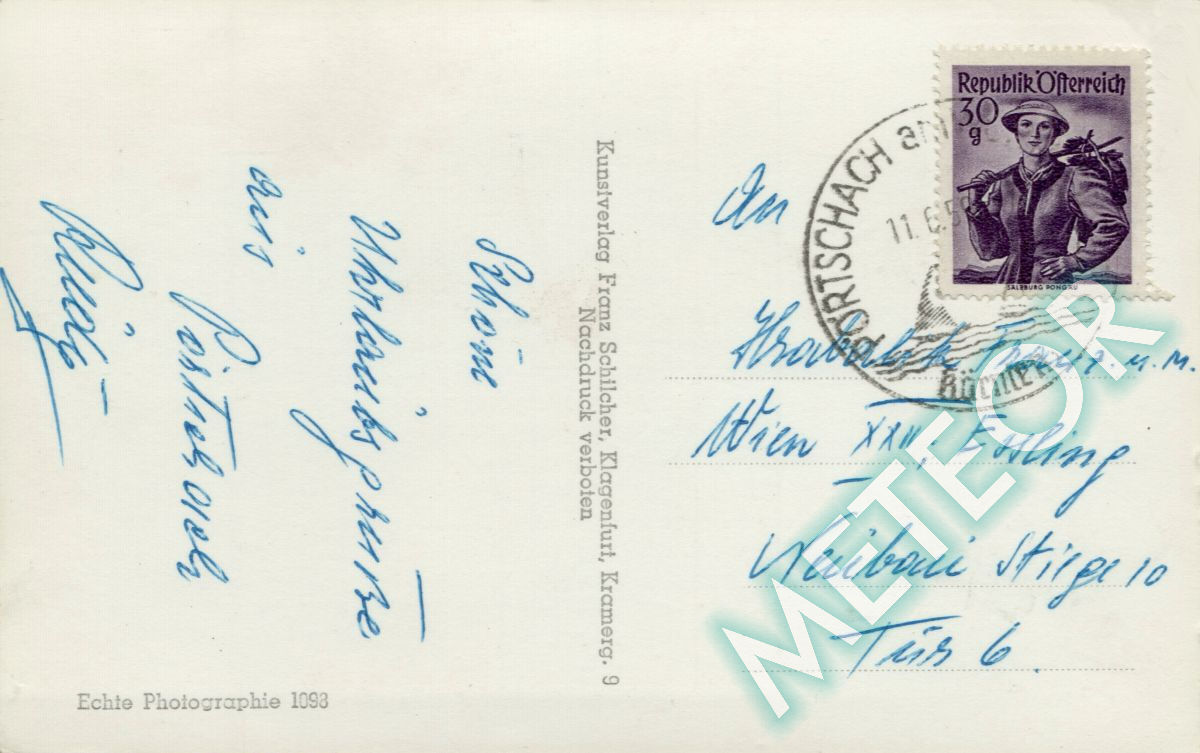 Schöne
Uhrlaubsgrüße
aus
Pörtschach
Republik Österreich
30
g
SALZBURG PONGAU
PÖRTSCHACH am
11.6.5
Kärnten
An
Franz u. M.
Wien XXII, Eßling
Neubau Stiege 10
Tür 6.
Kunstverlag Franz Schilcher, Klagenfurt, Kramerg. 9
Nachdruck verboten
Echte Photographie 1093
METEOR